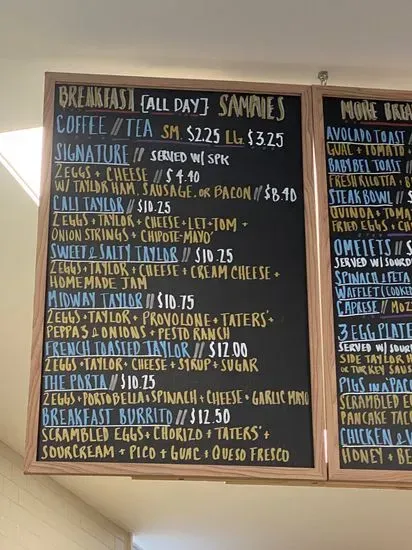 BREAKFAST [ALL DAY] SAMMIES
COFFEE // TEA SM. $2.25 LG. $3.25
SIGNATURE // SERVED W/ SPK
2 EGGS + CHEESE // $4.40
W/ TAYLOR HAM, SAUSAGE, OR BACON // $8.40
CALI TAYLOR // $10.25
2 EGGS + TAYLOR + CHEESE + LET-TOM +
ONION STRINGS + CHIPOTE-MAYO
SWEET & SALTY TAYLOR // $10.25
2 EGGS + TAYLOR + CHEESE + CREAM CHEESE +
HOMEMADE JAM
MIDWAY TAYLOR // $10.75
2 EGGS + TAYLOR + PROVOLONE + TATERS' +
PEPPAS & ONIONS + PESTO RANCH
FRENCH TOASTED TAYLOR // $12.00
2 EGGS + TAYLOR + CHEESE + SYRUP + SUGAR
THE PORTA // $10.25
2 EGGS + PORTOBELLA + SPINACH + CHEESE + GARLIC MAYO
BREAKFAST BURRITO // $12.50
SCRAMBLED EGGS + CHORIZO + TATERS' +
SOURCREAM + PICO + GUAC + QUESO FRESCO
MORE BREA
AVOCADO TOAST
GUAC + TOMATO +
BABYBEL TOAST //
FRESH RICOTTA + B
STEAK BOWL //
QUINOA + TOMA
FRIED EGGS + CH
OMELETS //
SERVED W/ SOURD
SPINACH & FETA
WAFFLET (COOKED
CAPRESE // MOZ
3 EGG PLATE
SERVED W/ SOUR
SIDE TAYLOR
OR TURKEY SAUS
PIGS IN A PAN
SCRAMBLED E
PANCAKE TAC
CHICKEN &
HONEY + BE